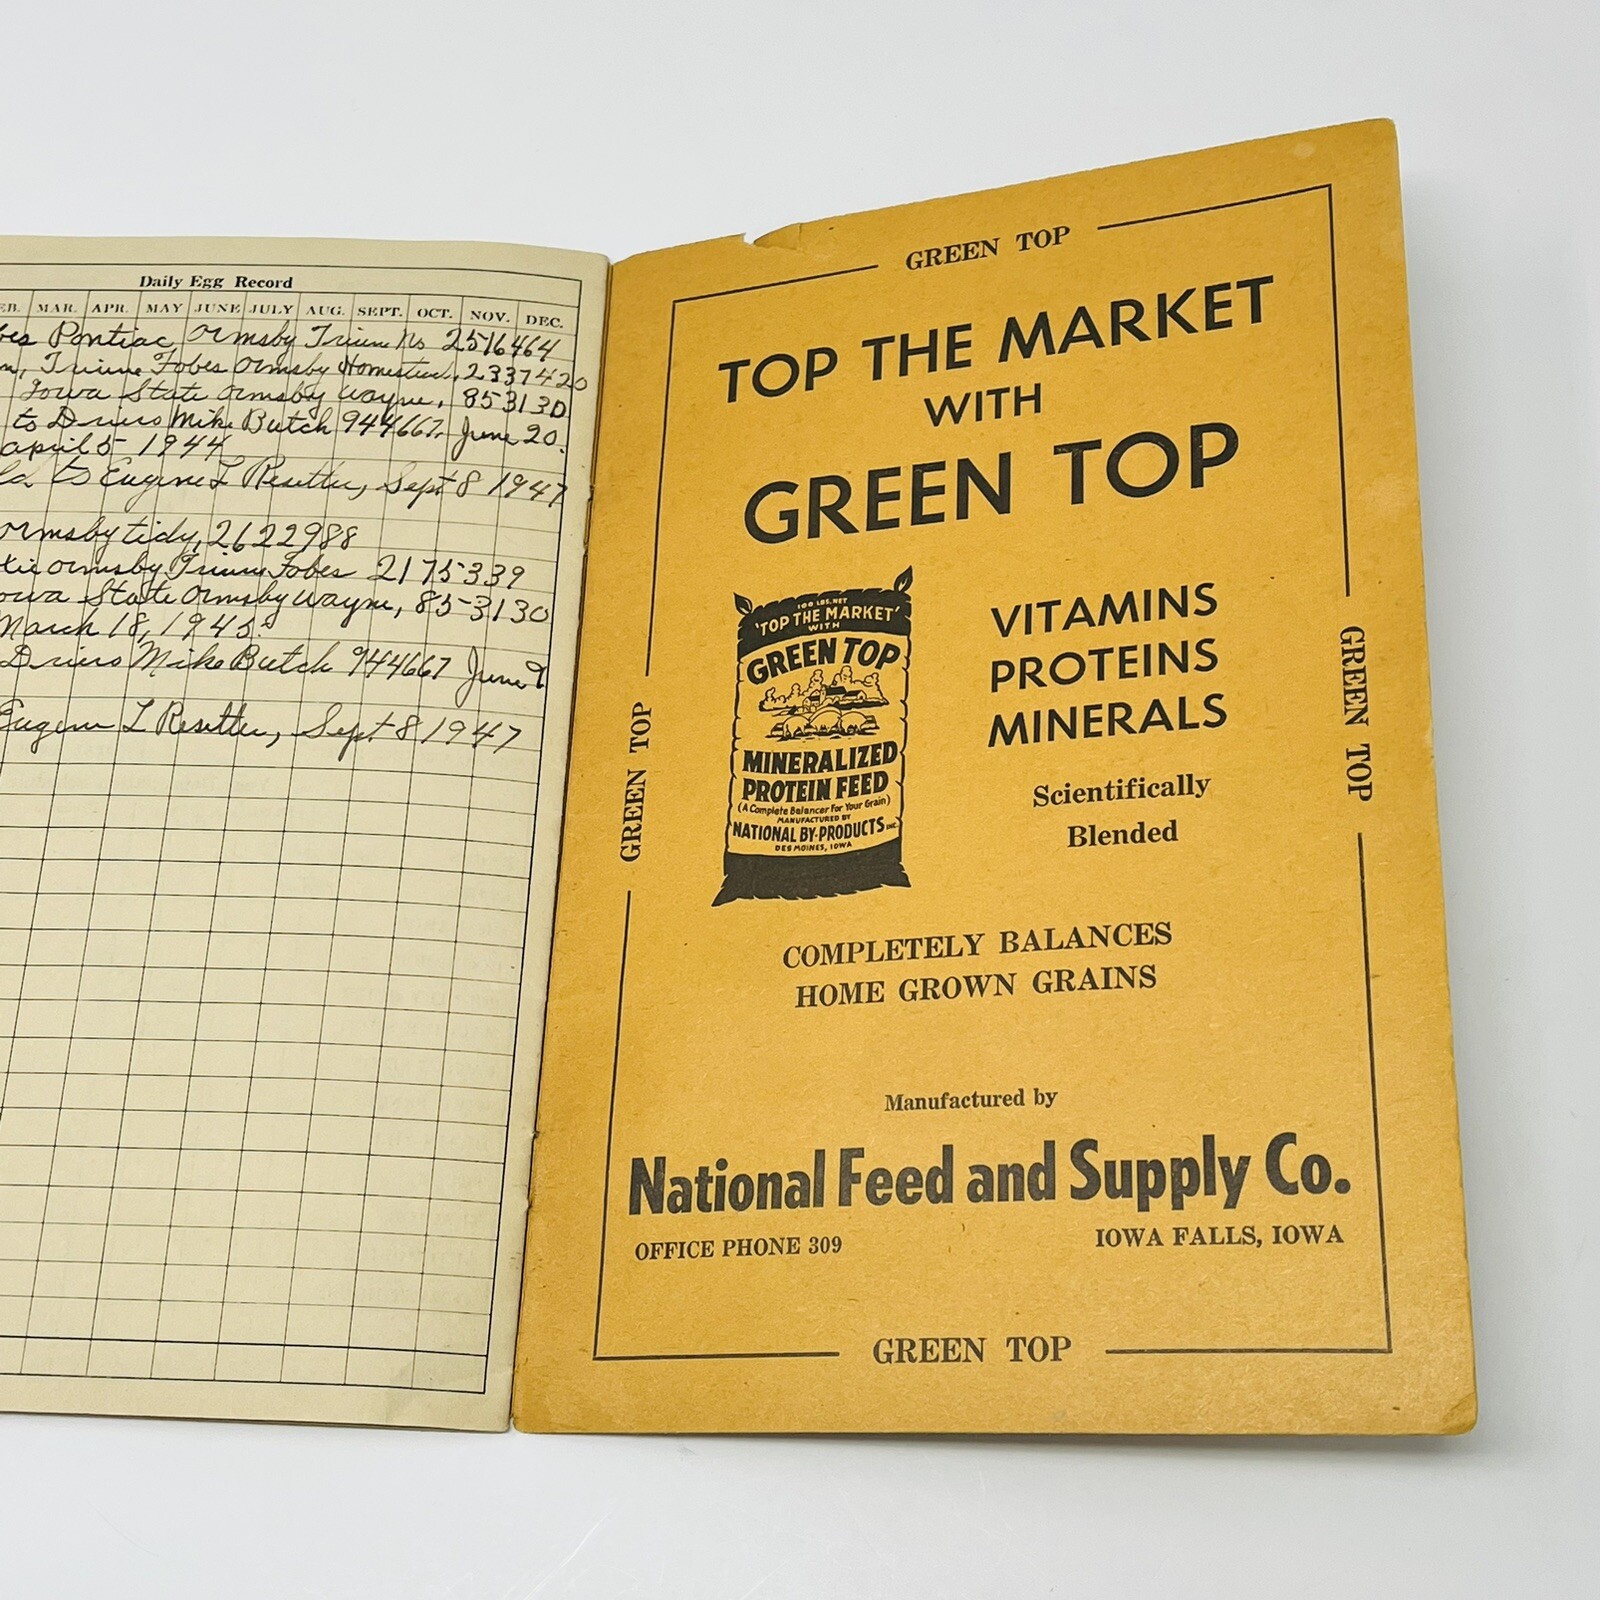 Daily Egg Record
EB. MAR. APR. MAY JUNE JULY AUG. SEPT. OCT. NOV. DEC.
bes Pontiac Ormsby Triune No 2516464
n, Triune Fobes Ormsby Homestead, 2337420
Iowa State Ormsby Wayne, 853130
to Driers Mike Butch 944667, June 20.
april 5 1944
ld to Eugene L Resetter, Sept 8 1947
ormsby tidy, 2622988
xie ormsby Triune Fobes 2175339
owa State Ormsby Wayne, 853130
March 18, 1945.
Driers Mike Butch 944667 June 9
Eugene L Resetter, Sept 8 1947
GREEN TOP
TOP THE MARKET
WITH
GREEN TOP
100 LBS. NET
'TOP THE MARKET'
WITH
GREEN TOP
MINERALIZED
PROTEIN FEED
(A Complete Balancer For Your Grain)
MANUFACTURED BY
NATIONAL BY-PRODUCTS INC.
DES MOINES, IOWA
VITAMINS
PROTEINS
MINERALS
Scientifically
Blended
GREEN TOP
GREEN TOP
COMPLETELY BALANCES
HOME GROWN GRAINS
Manufactured by
National Feed and Supply Co.
OFFICE PHONE 309 IOWA FALLS, IOWA
GREEN TOP